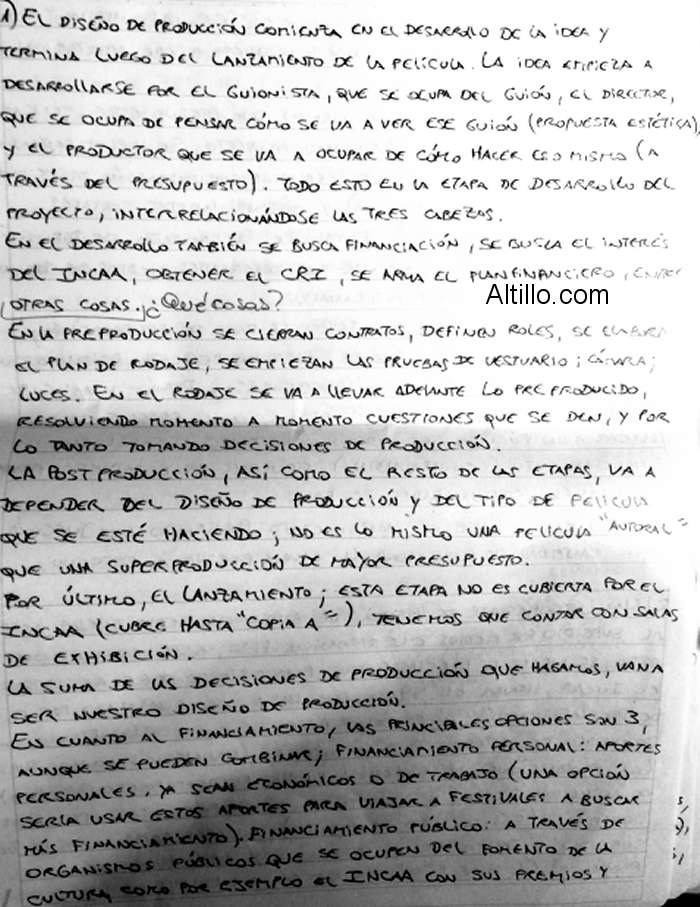 1) EL DISEÑO DE PRODUCCIÓN COMIENZA EN EL DESARROLLO DE LA IDEA Y
TERMINA LUEGO DEL LANZAMIENTO DE LA PELÍCULA. LA IDEA EMPIEZA A
DESARROLLARSE POR EL GUIONISTA, QUE SE OCUPA DEL GUIÓN, EL DIRECTOR,
QUE SE OCUPA DE PENSAR CÓMO SE VA A VER ESE GUIÓN (PROPUESTA ESTÉTICA),
Y EL PRODUCTOR QUE SE VA A OCUPAR DE CÓMO HACER ESO MISMO (A
TRAVÉS DEL PRESUPUESTO). TODO ESTO EN LA ETAPA DE DESARROLLO DEL
PROYECTO, INTERRELACIONÁNDOSE LAS TRES CABEZAS.
EN EL DESARROLLO TAMBIÉN SE BUSCA FINANCIACIÓN, SE BUSCA EL INTERÉS
DEL INCAA, OBTENER EL CRI, SE ARMA EL PLAN FINANCIERO, ENTRE
OTRAS COSAS. ¿Qué cosas?
Altillo.com
EN LA PREPRODUCCIÓN SE CIERRAN CONTRATOS, DEFINEN ROLES, SE ELABORA
EL PLAN DE RODAJE, SE EMPIEZAN LAS PRUEBAS DE VESTUARIO; CÁMARA;
LUCES. EN EL RODAJE SE VA A LLEVAR ADELANTE LO PREPRODUCIDO,
RESOLVIENDO MOMENTO A MOMENTO CUESTIONES QUE SE DEN, Y POR
LO TANTO TOMANDO DECISIONES DE PRODUCCIÓN.
LA POSTPRODUCCIÓN, ASÍ COMO EL RESTO DE LAS ETAPAS, VA A
DEPENDER DEL DISEÑO DE PRODUCCIÓN Y DEL TIPO DE PELICULA
QUE SE ESTÉ HACIENDO; NO ES LO MISMO UNA PELICULA "AUTORAL"
QUE UNA SUPERPRODUCCIÓN DE MAYOR PRESUPUESTO.
POR ÚLTIMO, EL LANZAMIENTO; ESTA ETAPA NO ES CUBIERTA POR EL
INCAA (CUBRE HASTA "COPIA A"), TENEMOS QUE CONTAR CON SALAS
DE EXHIBICIÓN.
LA SUMA DE LAS DECISIONES DE PRODUCCIÓN QUE HAGAMOS, VAN A
SER NUESTRO DISEÑO DE PRODUCCIÓN.
EN CUANTO AL FINANCIAMIENTO, LAS PRINCIPALES OPCIONES SON 3,
AUNQUE SE PUEDEN COMBINAR; FINANCIAMIENTO PERSONAL: APORTES
PERSONALES, YA SEAN ECONÓMICOS O DE TRABAJO (UNA OPCIÓN
SERÍA USAR ESTOS APORTES PARA VIAJAR A FESTIVALES A BUSCAR
MÁS FINANCIAMIENTO). FINANCIAMIENTO PÚBLICO: A TRAVÉS DE
ORGANISMOS PÚBLICOS QUE SE OCUPEN DEL FOMENTO DE LA
CULTURA COMO POR EJEMPLO EL INCAA CON SUS PREMIOS Y